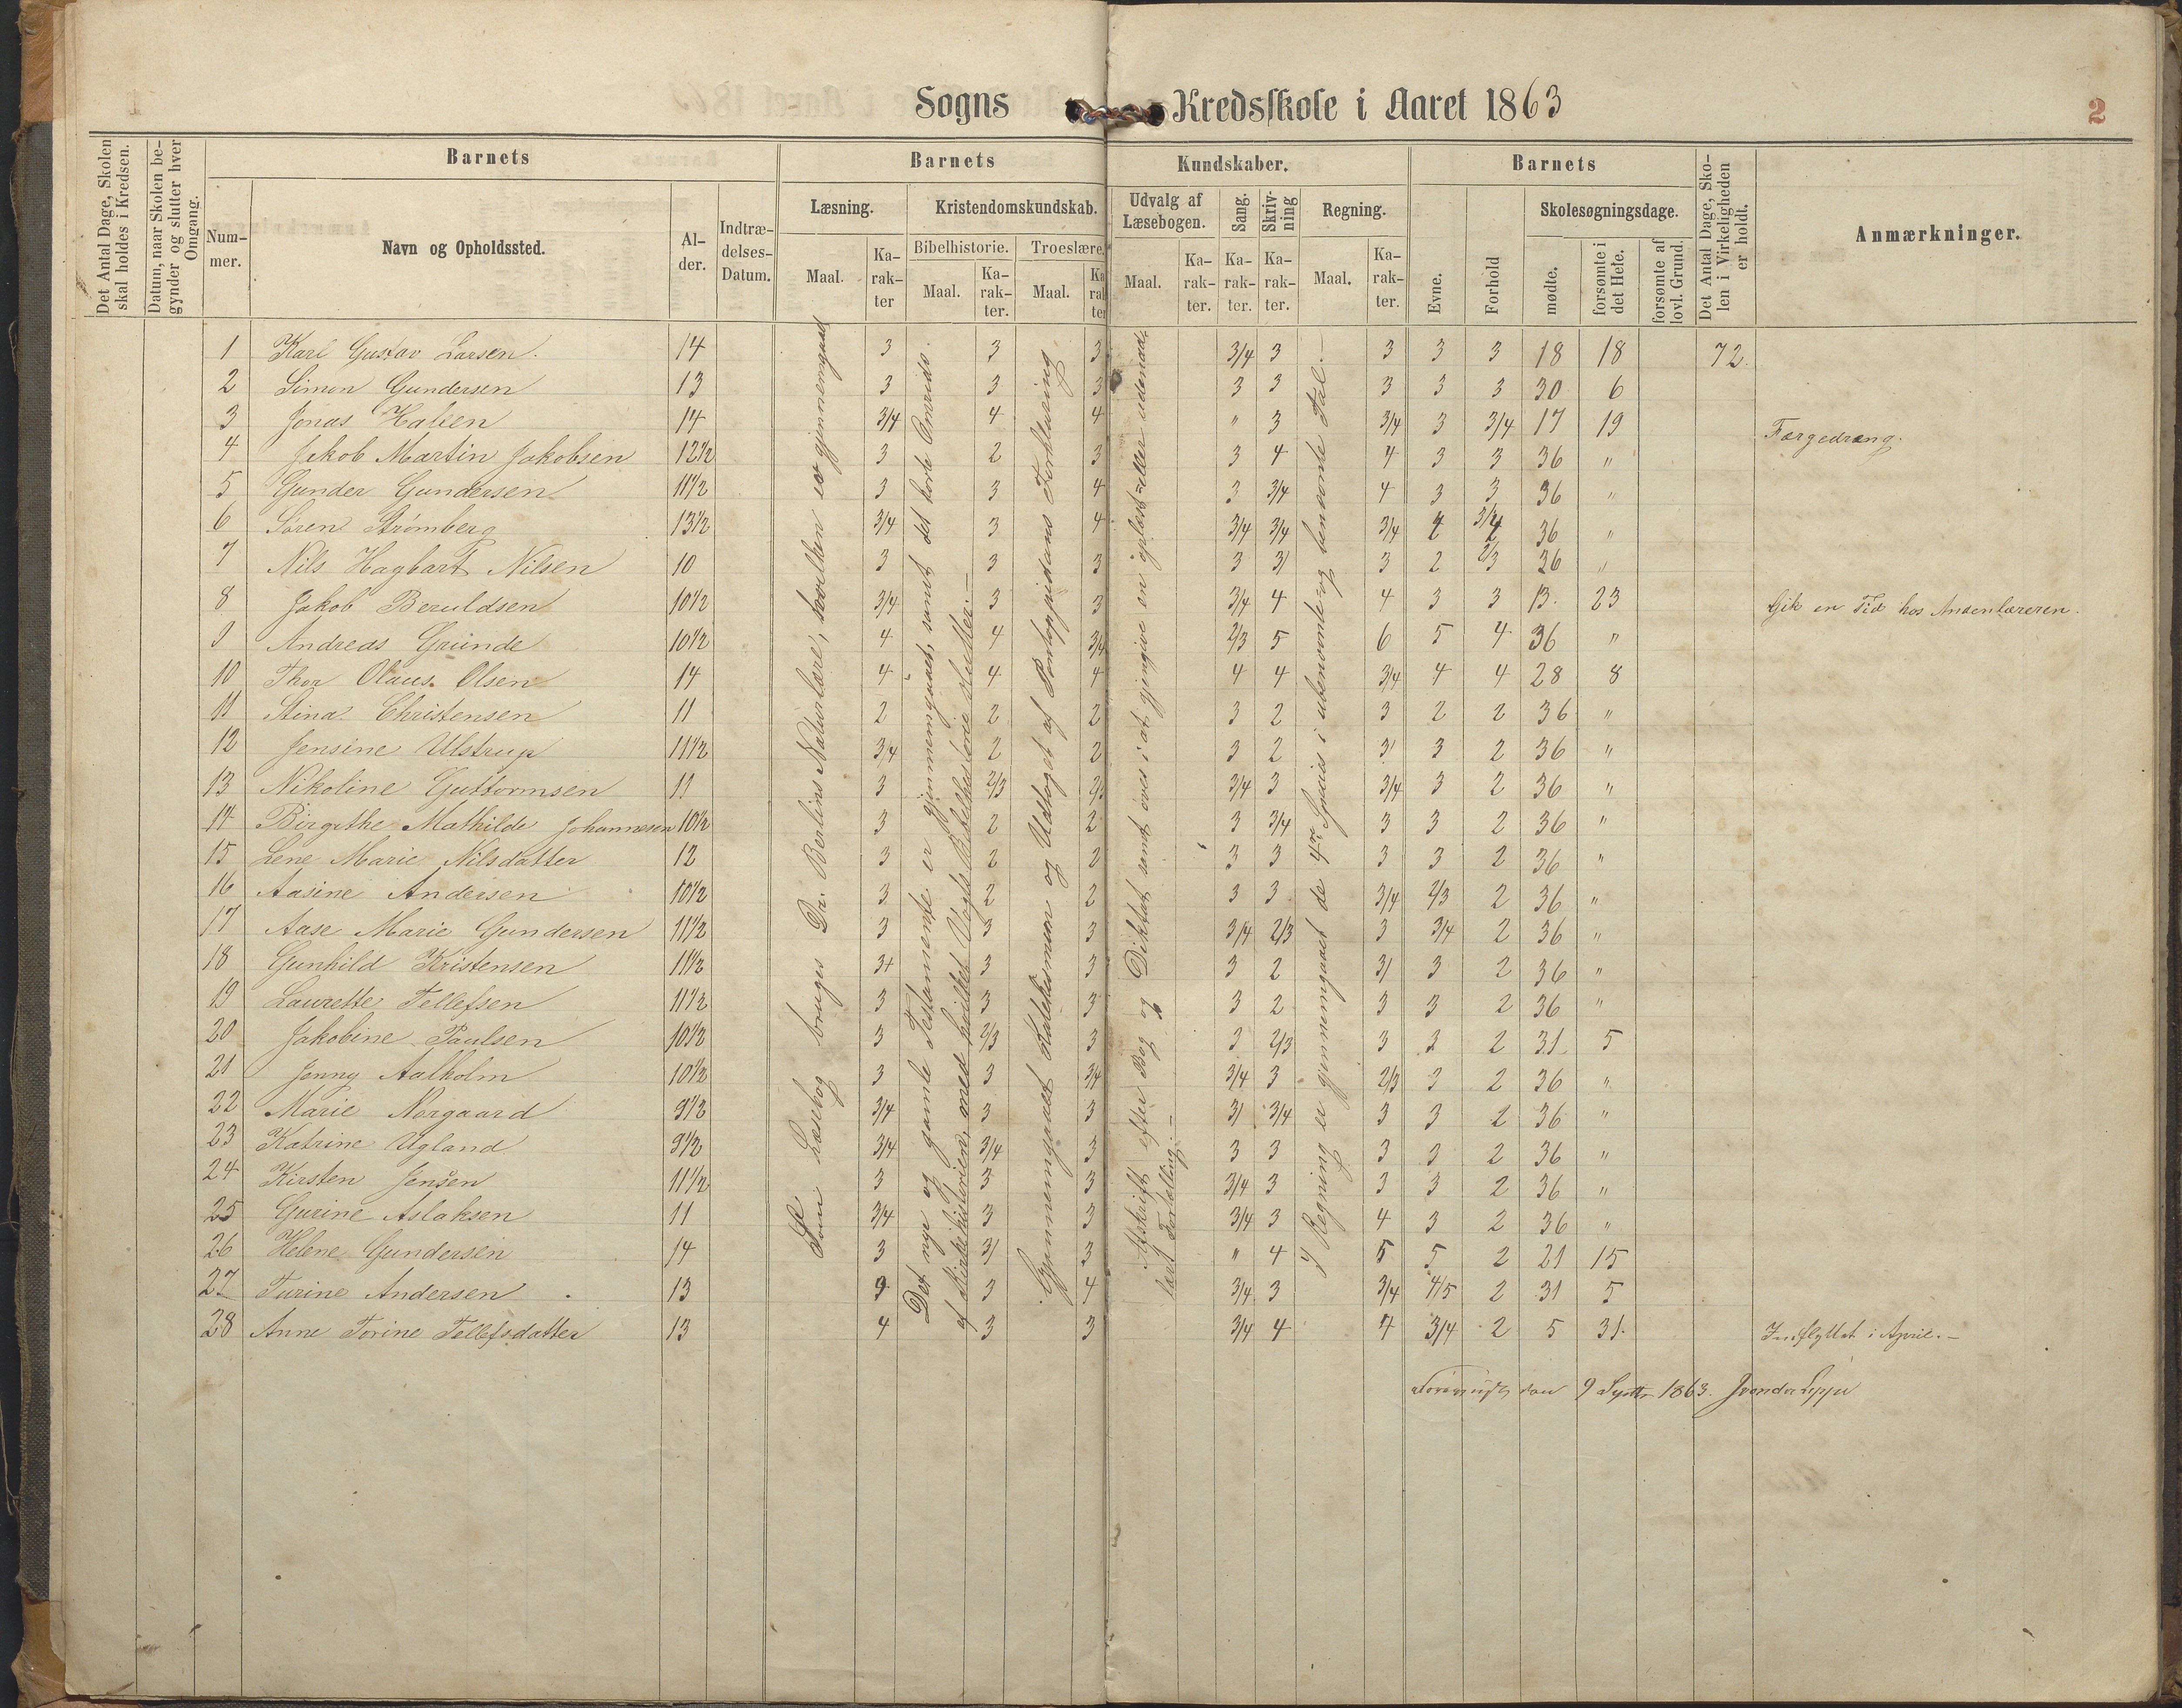 Sogns Kredsskole i Aaret 1863
2
Det Antal Dage, Skolen skal holdes i Kredsen.
Datum, naar Skolen begynder og slutter hver Omgang.
Barnets
Nummer.
Navn og Opholdssted.
Alder.
Indtrædelses-Datum.
Barnets Kundskaber.
Læsning.
Maal.
Karakter
Kristendomskundskab.
Bibelhistorie.
Maal.
Karakter.
Troeslære.
Maal.
Karakter
Udvalg af Læsebogen.
Maal.
Karakter.
Sang.
Karakter.
Skrivning
Karakter.
Regning.
Maal.
Karakter.
Barnets
Evne.
Forhold
Skolesøgningsdage.
mødte.
forsømte i det Hele.
forsømte af lovl. Grund.
Det Antal Dage, Skolen i Virkeligheden er holdt.
Anmærkninger.
1 Karl Gustav Larsen. 14 3 3 3 3/4 3 3 3 3 18 18 72
2 Simon Gundersen 13 3 3 3 3 3 3 3 3 30 6
3 Jonas Halsen 14 3/4 4 4 " 3 3/4 3 3/4 17 19 Færgedræng.
4 Jakob Martin Jakobsen 12 1/2 3 2 3 3 4 4 3 3 36 "
5 Gunder Gundersen 11 1/2 3 3 4 3 3/4 4 3 3 36 "
6 Søren Strømberg 13 1/2 3/4 3 4 3/4 3/4 3/4 4 3/4 36 "
7 Nils Hagbart Nilsen 10 3 3 3 3 3/ 3 2 2/3 36 "
8 Jakob Beruldsen 10 1/2 3/4 3 3 3/4 4 4 3 3 13 23 Gik en Tid hos Andenlæreren.
9 Andreas Grunde 10 1/2 4 4 3/4 2/3 5 6 5 4 36 "
10 Thor Olaus Olsen 14 4 4 4 4 4 3/4 4 4 28 8
11 Stina Christensen 11 2 2 2 3 2 3 2 2 36 "
12 Jensine Ulstrup 11 1/2 3/4 2 2 3 2 3/ 3 2 36 "
13 Nikoline Guttormsen 11 3 2/3 2/3 3/4 3 3/4 3 2 36 "
14 Birgithe Mathilde Johannesen 10 1/2 3 2 2 3 3/4 3 3 2 36 "
15 Lene Marie Nilsdatter 12 3 2 2 3 3 3 3 2 36 "
16 Aasine Andersen 10 1/2 3 2 2 3 3 3/4 2/3 2 36 "
17 Aase Marie Gundersen 11 1/2 3 3 3 3/4 2/3 3 3/4 2 36 "
18 Gunhild Kristensen 11 1/2 3+ 3 3 3 2 3/ 3 2 36 "
19 Laurette Tellefsen 11 1/2 3 3 3 3 2 3 3 2 36 "
20 Jakobine Paulsen 10 1/2 3 2/3 3 3 2/3 3 3 2 31 5
21 Jenny Aalholm 10 1/2 3 3 3/4 3/4 3 2/3 3 2 36 "
22 Marie Nørgaard 9 1/2 3/4 3 3 3/ 3/4 3 3 2 36 "
23 Katrine Ugland 9 1/2 3/4 3/4 3 3 3 3 3 2 36 "
24 Kirsten Jensen 11 1/2 3 3 3 3/4 3 3 3 2 36 "
25 Gurine Aslaksen 11 3/4 3 3 3/4 3 4 3 2 36 "
26 Helene Gundersen 14 3 3/ 3 " 4 5 5 2 21 15
27 Turine Andersen 13 3 3 4 3/4 3 3/4 4/5 2 31 5
28 Anne Torine Tellefsdatter 13 4 3 3 3/4 4 4 3/4 2 5 31. Indflyttet i April.-
Som Læsebog bruges Dr. Berlins Naturlære, hvilken er gjennemgaaet
Det nye og gamle Testamente er gjennemgaaet, samt det korte Omrids
af Kirkehistorien, med hvilket Vogts Bibelhistorie slutter.-
Gjennemgaaet Katekismen og Udtoget af Pontoppidans Forklaring.
Afskrift efter Bog og Diktat samt øves i at gjengive en oplæst eller udenad-
lært Fortælling.-
I Regning er gjennemgaaet de 4re Species i ubenævnte og benævnte Tal.-
9 Septbr 1863.